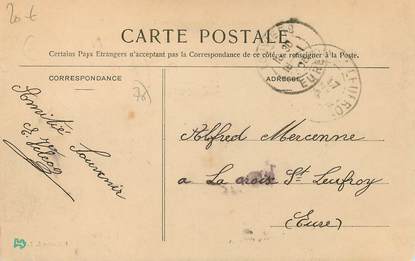 20€
CARTE POSTALE
Certains Pays Etrangers n'acceptant pas la Correspondance de ce côté, se renseigner à la Poste.
CORRESPONDANCE
ADRESSE
Amitié
Souvenir
Alfred Mercenne
a La croix St Leufroy
(Eure)